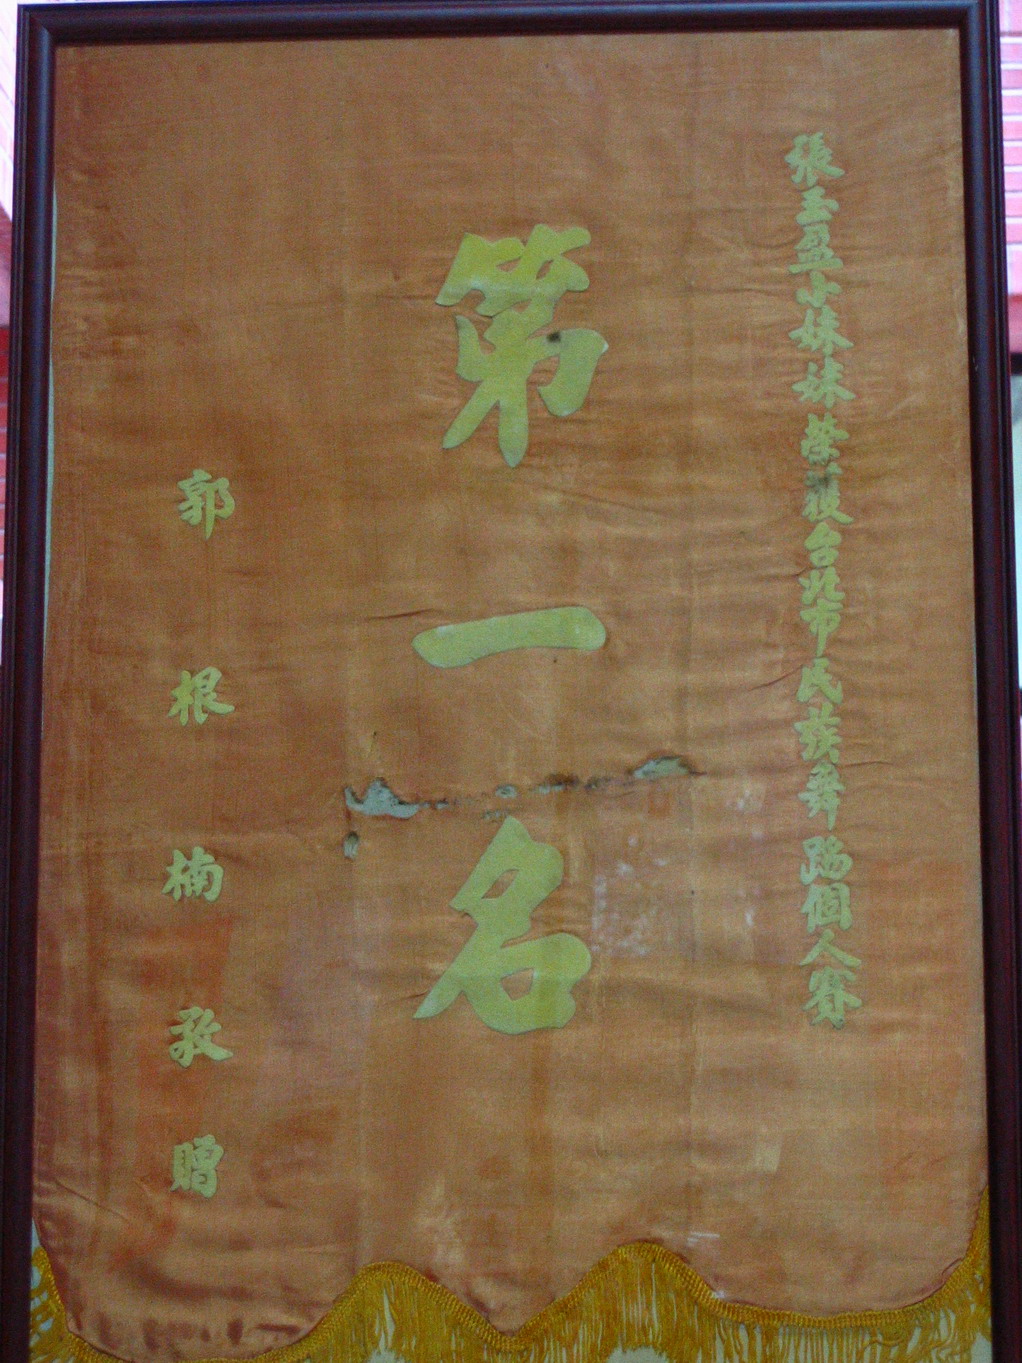 張玉盈小妹妹榮獲台北市民族舞蹈個人賽
第一名
郭根楠敬贈